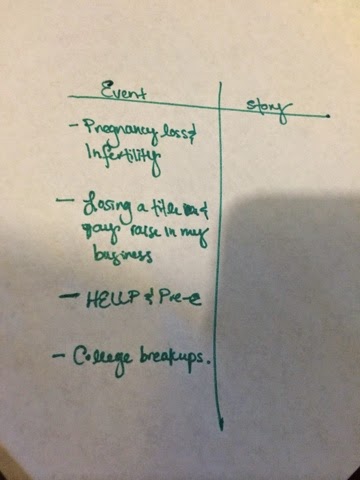 Event
Story
- Pregnancy loss &
Infertility
- Losing a title &
pay raise in my
business
- HELLP & Pre-e
- College breakups.